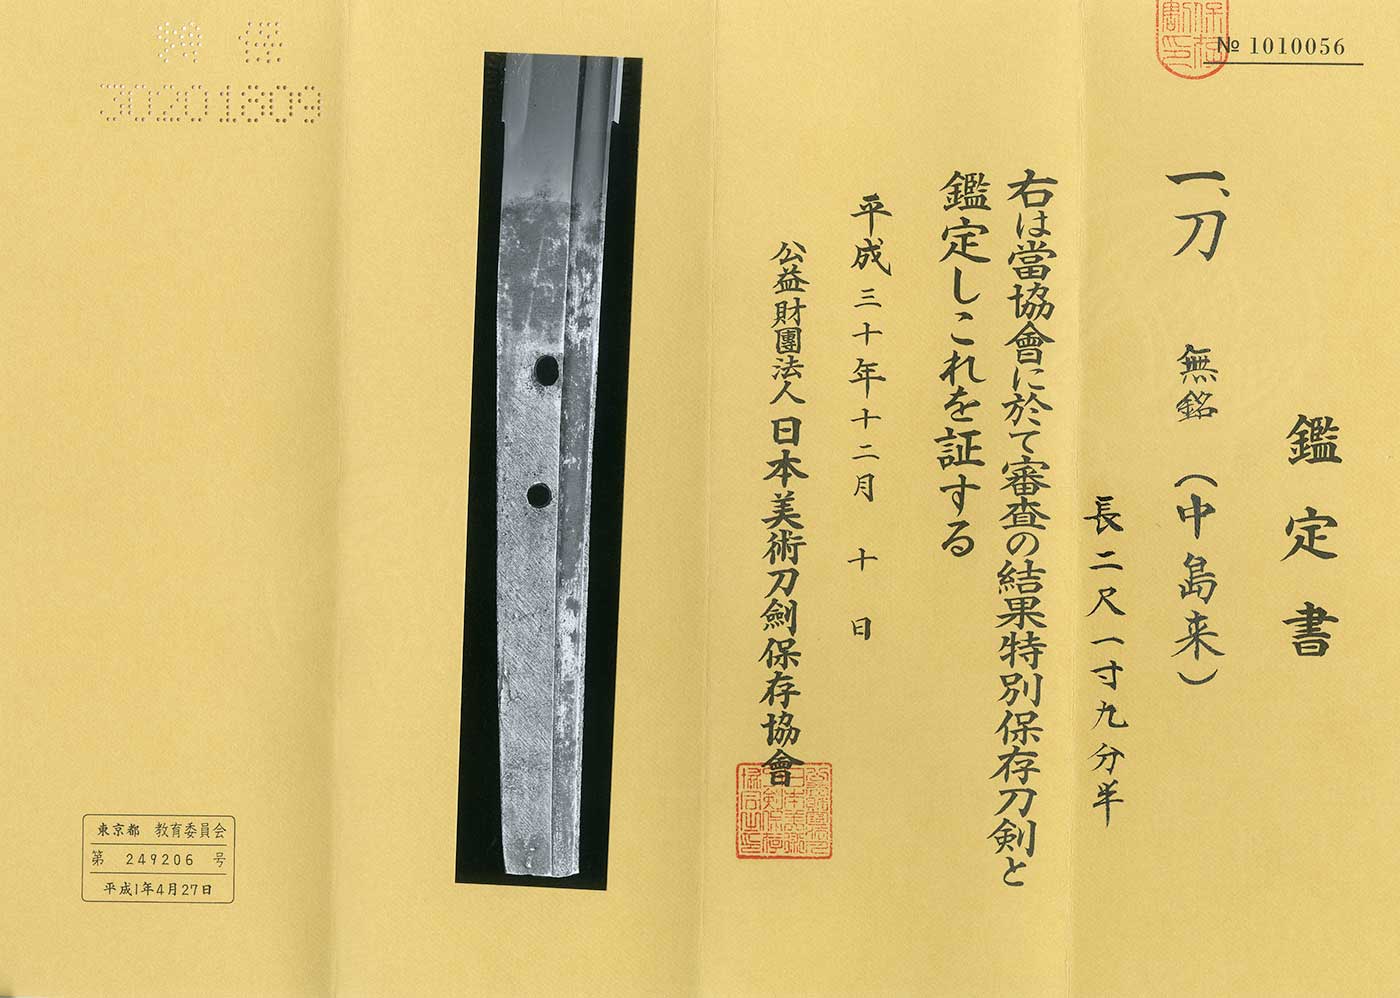 № 1010056
鑑定書
一、刀 無銘（中島来）
長二尺一寸九分半
右は當協會に於て審査の結果特別保存刀剣と
鑑定しこれを証する
平成三十年十二月十日
公益財團法人日本美術刀劍保存協會
30201809
東京都 教育委員会
第 249206 号
平成1年4月27日